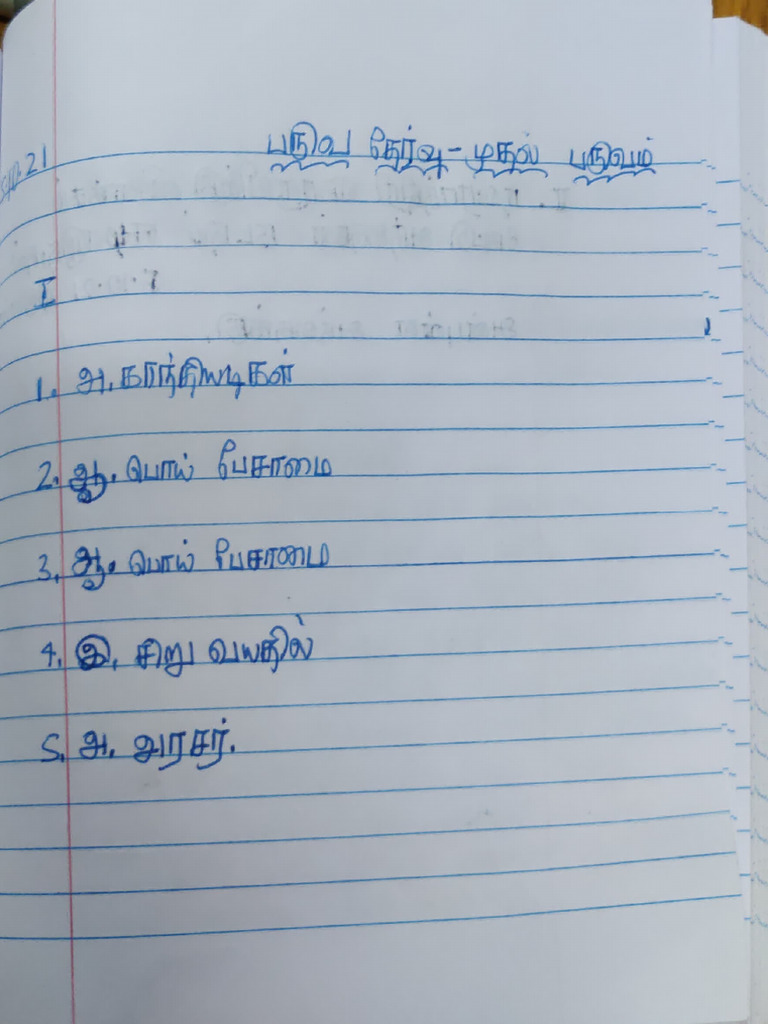 பருவ தேர்வு - முதல் பருவம்
I
1. அ. காந்தியடிகள்
2. ஆ. பொய் பேசாமை
3. ஆ. பொய் பேசாமை
4. இ. சிறு வயதில்
5. அ. அரசர்.